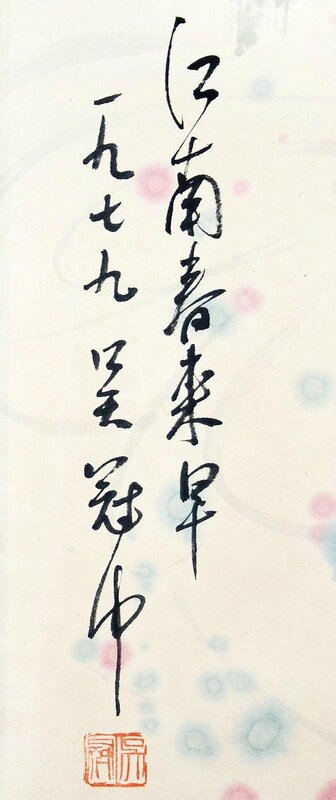 江南春来早
一九七九 吴冠中